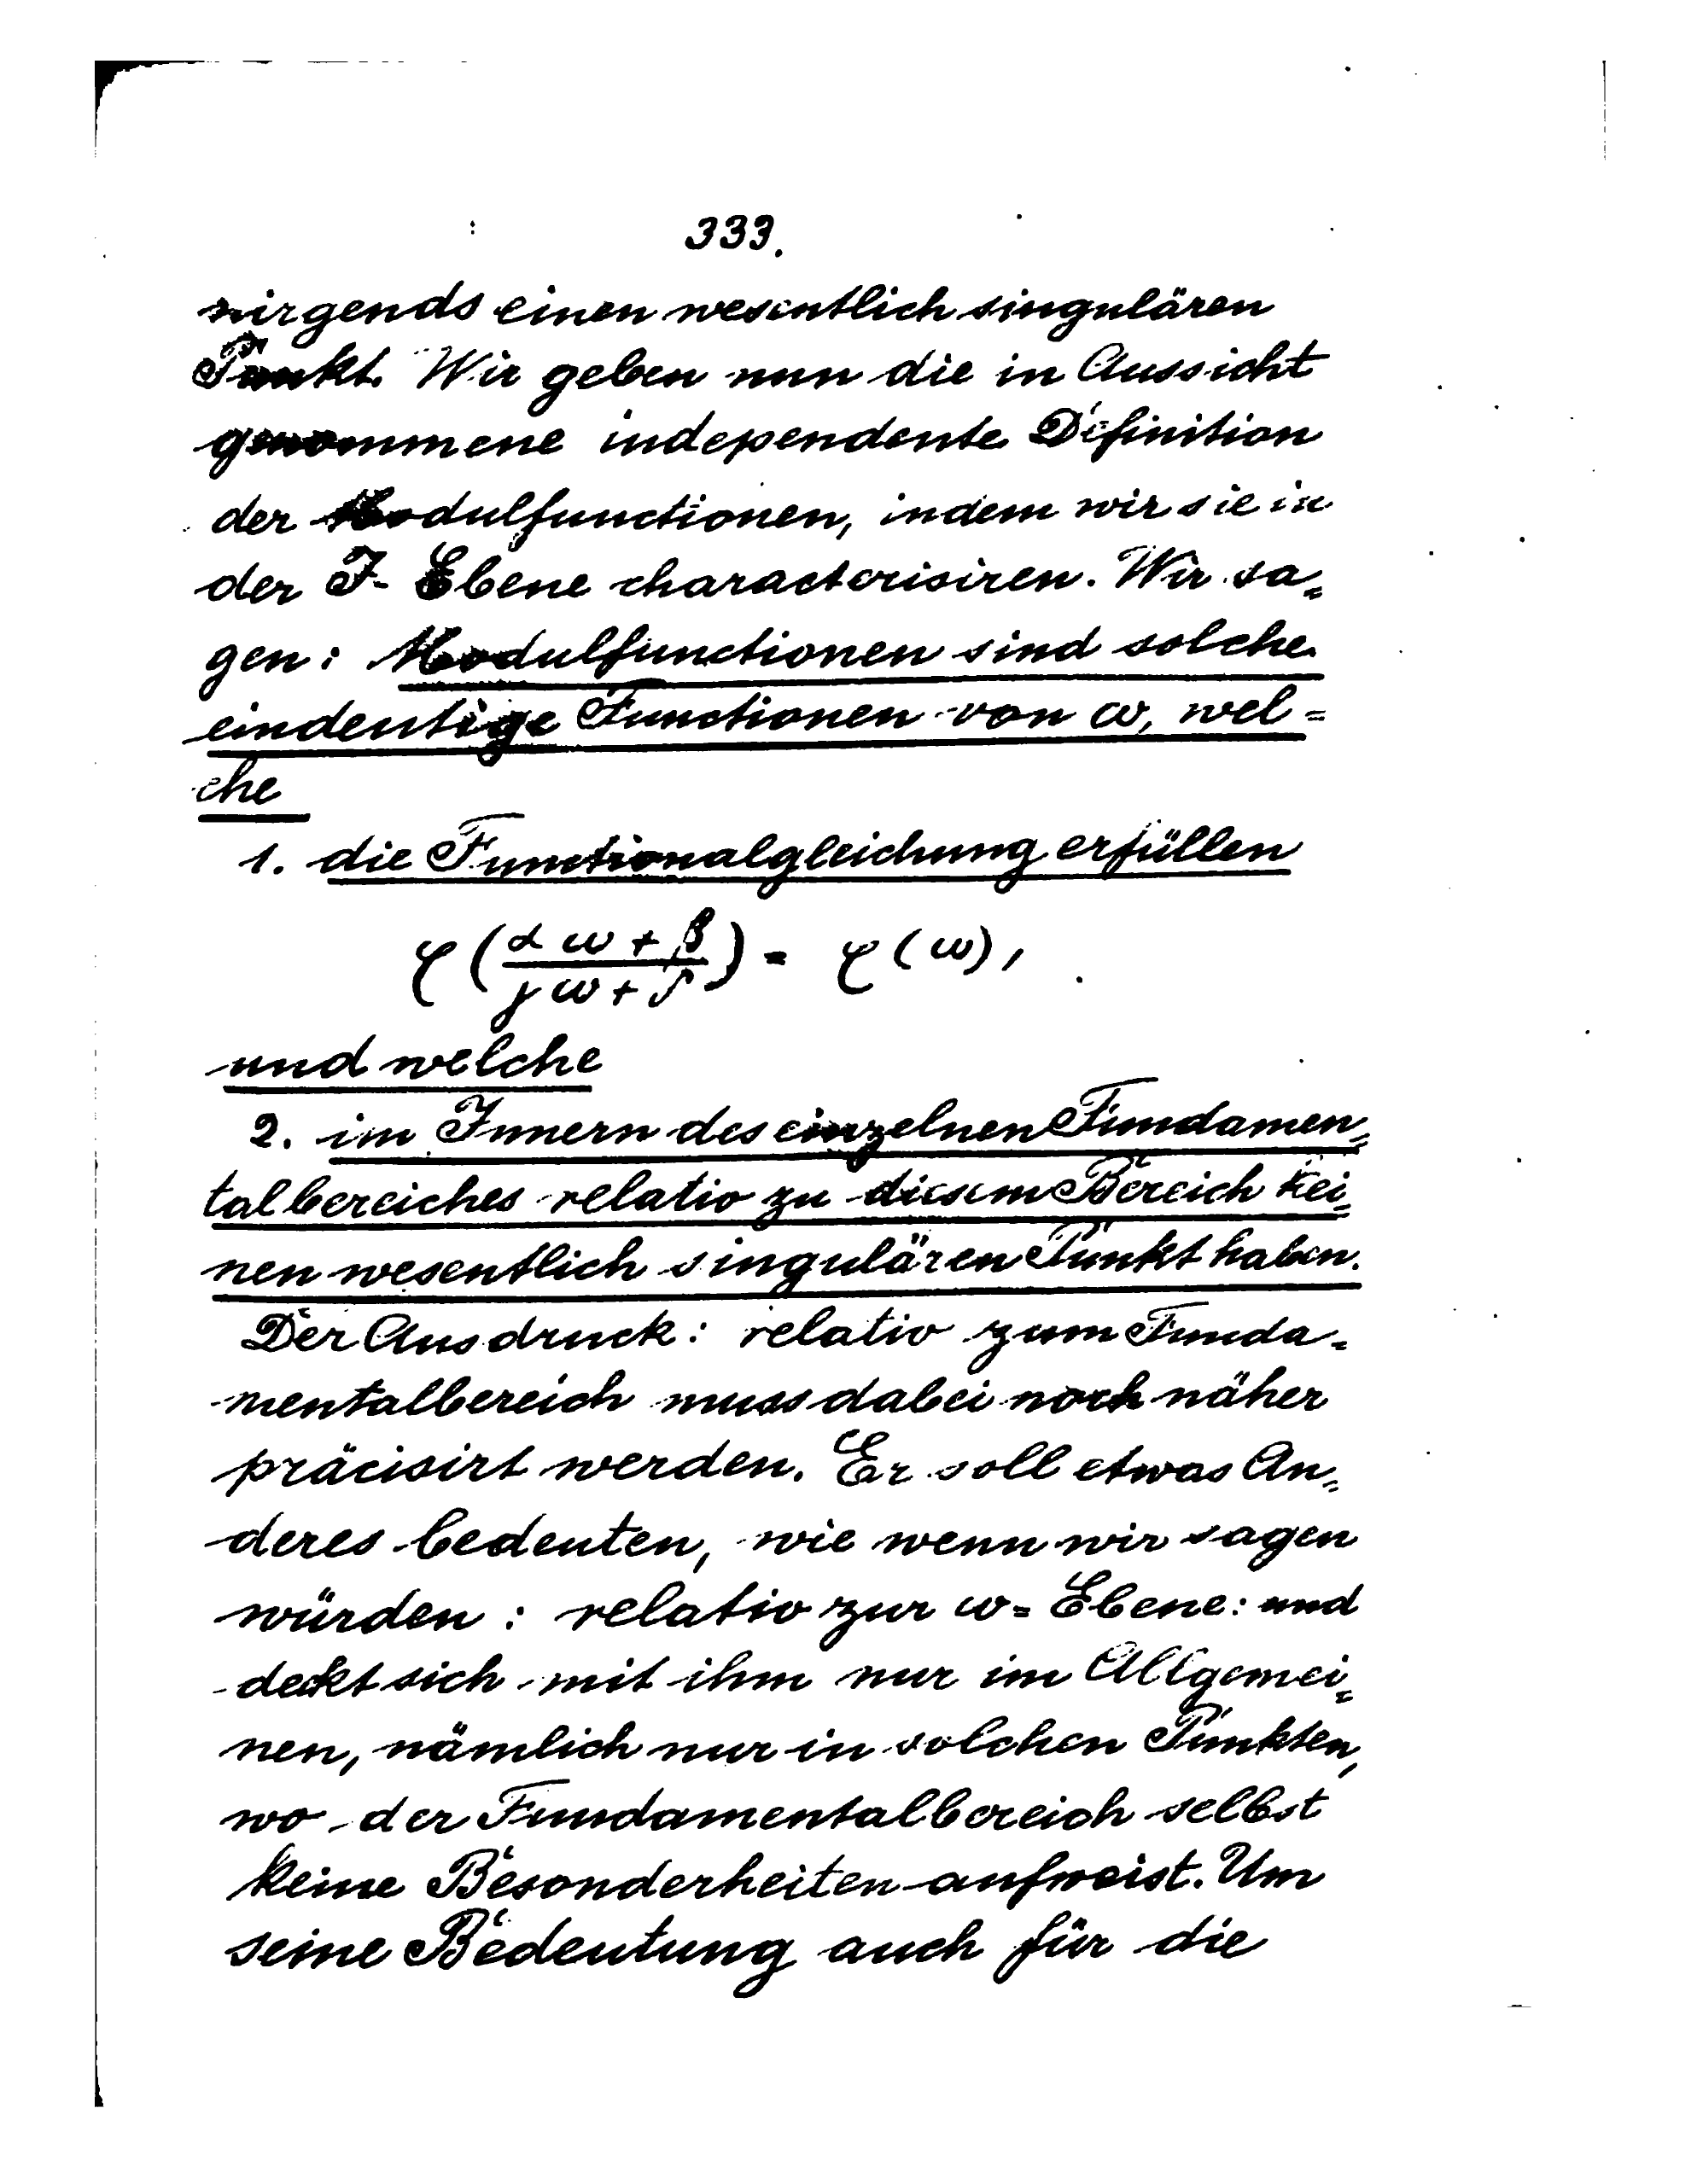 333.
nirgends einen wesentlich singulären
Punkt. Wir geben nun die in Aussicht
genommene independente Definition
der Modulfunctionen, indem wir sie in
der J- Ebene characterisiren. Wir sa=
gen: Modulfunctionen sind solche
eindeutige Functionen von ω, wel=
che
1. die Functionalgleichung erfüllen
φ(αω+β / γω+δ) = φ(ω),
und welche
2. im Innern des einzelnen Fundamen=
talbereiches relativ zu diesem Bereich kei=
nen wesentlich singulären Punkt haben.
Der Ausdruck: relativ zum Funda=
mentalbereich muss dabei noch näher
präcisirt werden. Er soll etwas An=
deres bedeuten, wie wenn wir sagen
würden: relativ zur ω=Ebene: und
deckt sich mit ihm nur im Allgemei=
nen, nämlich nur in solchen Punkten,
wo der Fundamentalbereich selbst
keine Besonderheiten aufweist. Um
seine Bedeutung auch für die